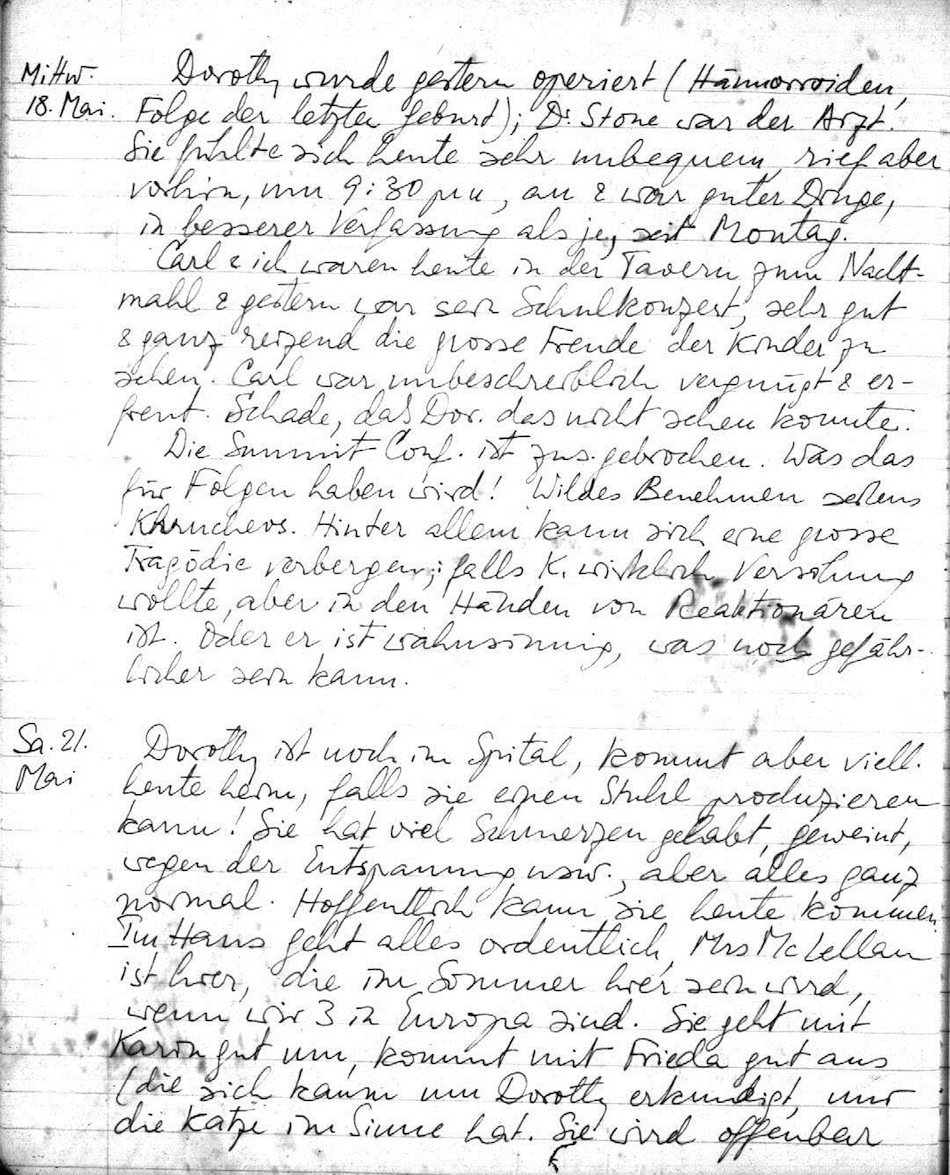 Mittw.
18. Mai.
Dorothy wurde gestern operiert (Hämorroiden,
Folge der letzten Geburt); Dr. Stone war der Arzt.
Sie fühlte sich heute sehr unbequem, rief aber
vorhin, um 9:30 pm, an & war guter Dinge,
in besserer Verfassung als je, seit Montag.
Carl & ich waren heute in der Tavern zum Nacht-
mahl & gestern war sein Schulkonzert, sehr gut
& ganz reizend die grosse Freude der Kinder zu
sehen. Carl war unbeschreiblich vergnügt & er-
freut. Schade, daß Dor. das nicht sehen konnte.
Die Summit Conf. ist zus.gebrochen. Was das
für Folgen haben wird! Wildes Benehmen seitens
Khruchevs. Hinter allem kann sich eine grosse
Tragödie verbergen; falls K. wirklich Versöhnung
wollte, aber in den Händen von Reaktionären
ist. Oder er ist wahnsinnig, was noch gefähr-
licher sein kann.
Sa. 21.
Mai
Dorothy ist noch im Spital, kommt aber viell.
heute heim, falls sie einen Stuhl produzieren
kann! Sie hat viel Schmerzen gehabt, geweint,
wegen der Entspannung usw., aber alles ganz
normal. Hoffentlich kann sie heute kommen.
Im Haus geht alles ordentlich, Mrs McLellan
ist hier, die im Sommer hier sein wird,
wenn wir 3 in Europa sind. Sie geht mit
Karin gut um, kommt mit Frieda gut aus
(die sich kaum um Dorothy erkundigt, nur
die Katze im Sinne hat. Sie wird offenbar